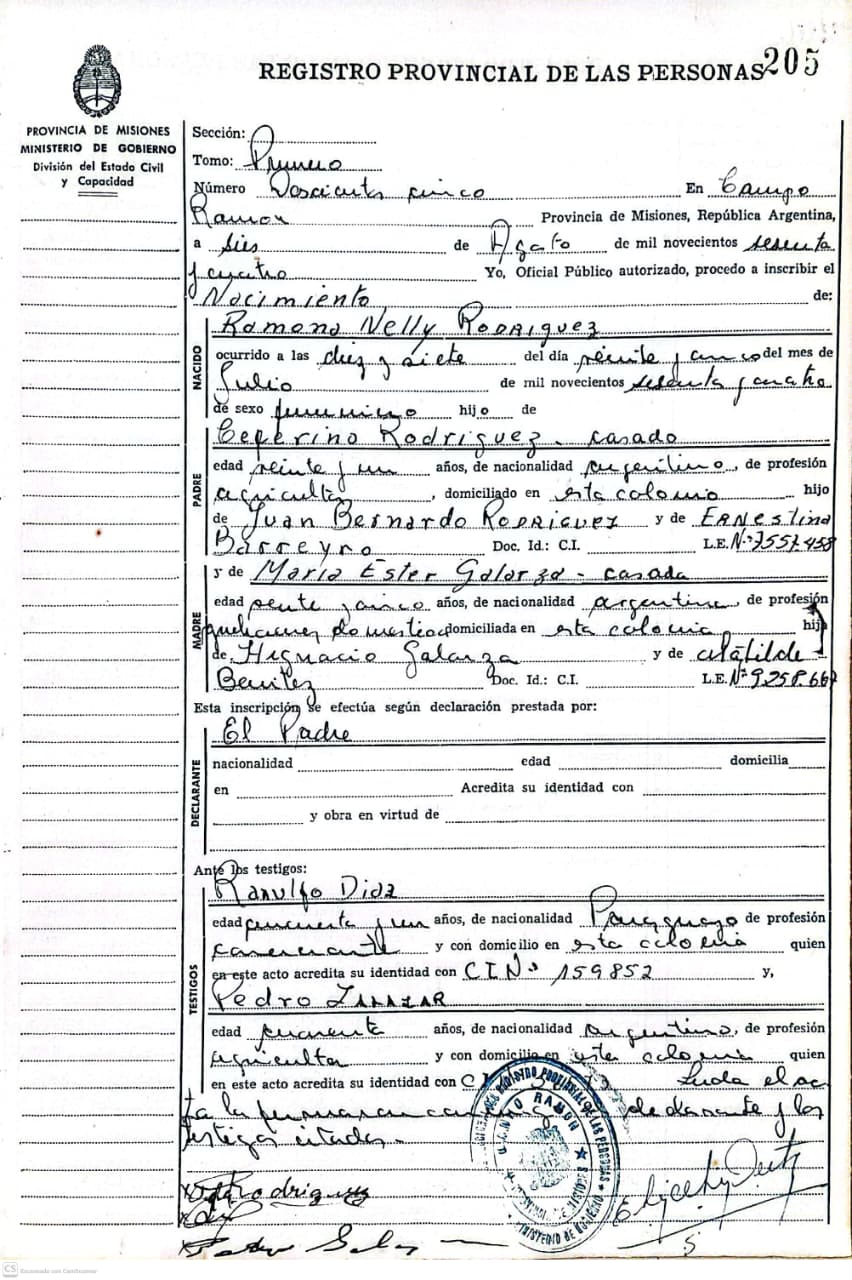 205
REGISTRO PROVINCIAL DE LAS PERSONAS
PROVINCIA DE MISIONES
MINISTERIO DE GOBIERNO
División del Estado Civil
y Capacidad
Sección:
Tomo: Primero
Número Doscientos cinco En Campo
Ramon Provincia de Misiones, República Argentina,
a Seis de Agosto de mil novecientos sesenta
y cuatro Yo, Oficial Público autorizado, procedo a inscribir el
Nacimiento de:
NACIDO
Ramona Nelly RODRIGUEZ
ocurrido a las diez y siete del día veinte y cinco del mes de
Julio de mil novecientos sesenta y cuatro
de sexo femenino hijo de
PADRE
Ceferino Rodriguez - casado
edad veinte y un años, de nacionalidad argentino, de profesión
agricultor, domiciliado en esta colonia hijo
de Juan Bernardo RODRIGUEZ y de ERNestina
Barreyro Doc. Id.: C.I. L.E. Nº 7557.458
MADRE
y de Maria Ester Galarza - casada
edad veinte y cinco años, de nacionalidad argentina, de profesión
quehaceres domesticos domiciliada en esta colonia hija
de Hignacio Galarza y de Matilde
Benitez Doc. Id.: C.I. L.E. Nº 9.258.667
Esta inscripción se efectúa según declaración prestada por:
DECLARANTE
El Padre
nacionalidad edad domicilia
en Acredita su identidad con
y obra en virtud de
Ante los testigos:
TESTIGOS
Ranulfo Diaz
edad cincuenta y un años, de nacionalidad Paraguayo de profesión
comerciante y con domicilio en esta colonia quien
en este acto acredita su identidad con C I Nº 159852 y,
Pedro ZALAZAR
edad cuarenta años, de nacionalidad argentino, de profesión
agricultor y con domicilio en esta colonia quien
en este acto acredita su identidad con Leida el ac
ta la firmaron declarante y los
testigos citados.-
REGISTRO PROVINCIAL DE LAS PERSONAS
CAMPO RAMON
MINISTERIO DE GOBIERNO
Rodriguez
CS Escaneado con CamScanner